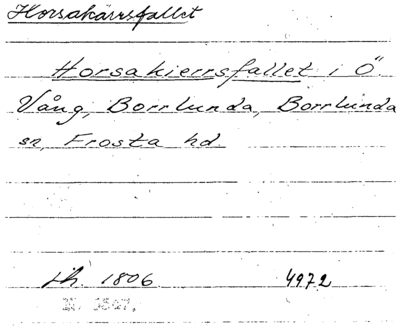 Horsakärrsfallet
Horsakierrsfallet i Ö.
Vång, Borrlunda, Borrlunda
sn, Frosta hd.
Lh. 1806 4972